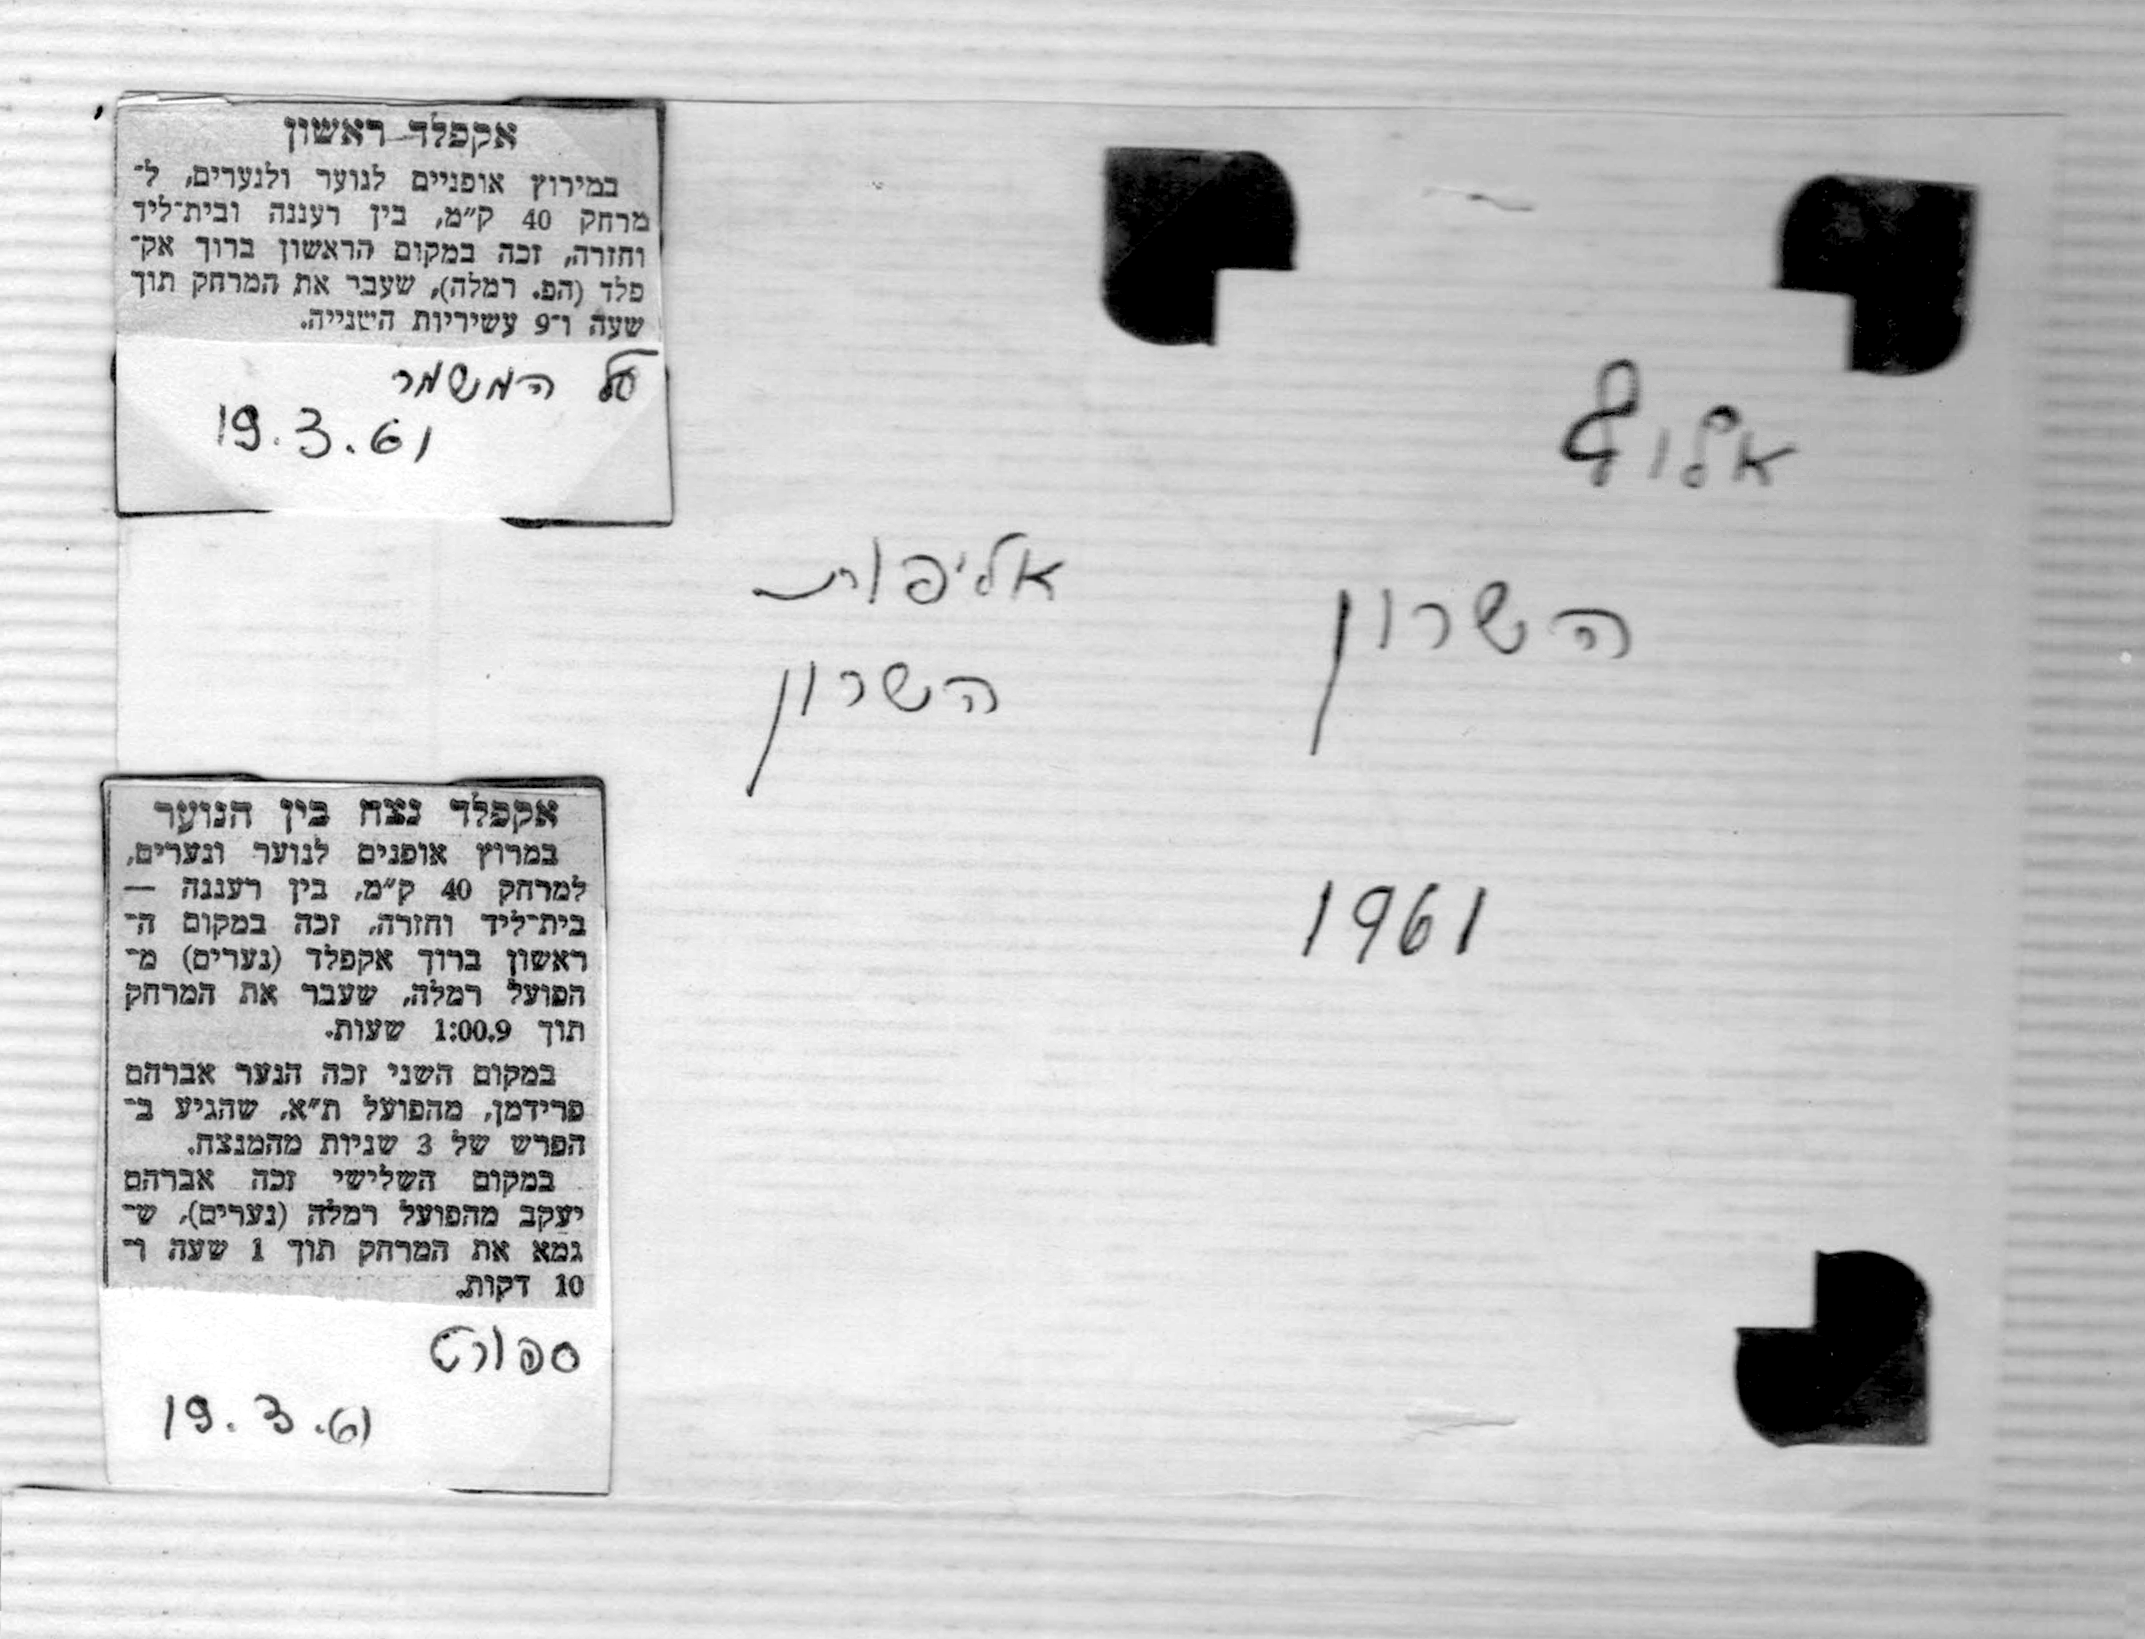 אקפלד ראשון
במירוץ אופניים לנוער ולנערים, ל־
מרחק 40 ק״מ, בין רעננה ובית־ליד
וחזרה, זכה במקום הראשון ברוך אק־
פלד (הפ. רמלה), שעבר את המרחק תוך
שעה ו־9 עשיריות השנייה.
על המשמר
19.3.61
אלוף
השרון
1961
אליפות
השרון
אקפלד נצח בין הנוער
במרוץ אופנים לנוער ונערים,
למרחק 40 ק״מ, בין רעננה —
בית־ליד וחזרה, זכה במקום ה־
ראשון ברוך אקפלד (נערים) מ־
הפועל רמלה, שעבר את המרחק
תוך 1:00.9 שעות.
במקום השני זכה הנער אברהם
פרידמן, מהפועל ת״א, שהגיע ב־
הפרש של 3 שניות מהמנצח.
במקום השלישי זכה אברהם
יעקב מהפועל רמלה (נערים), ש־
גמא את המרחק תוך 1 שעה ו־
10 דקות.
ספורט
19.3.61